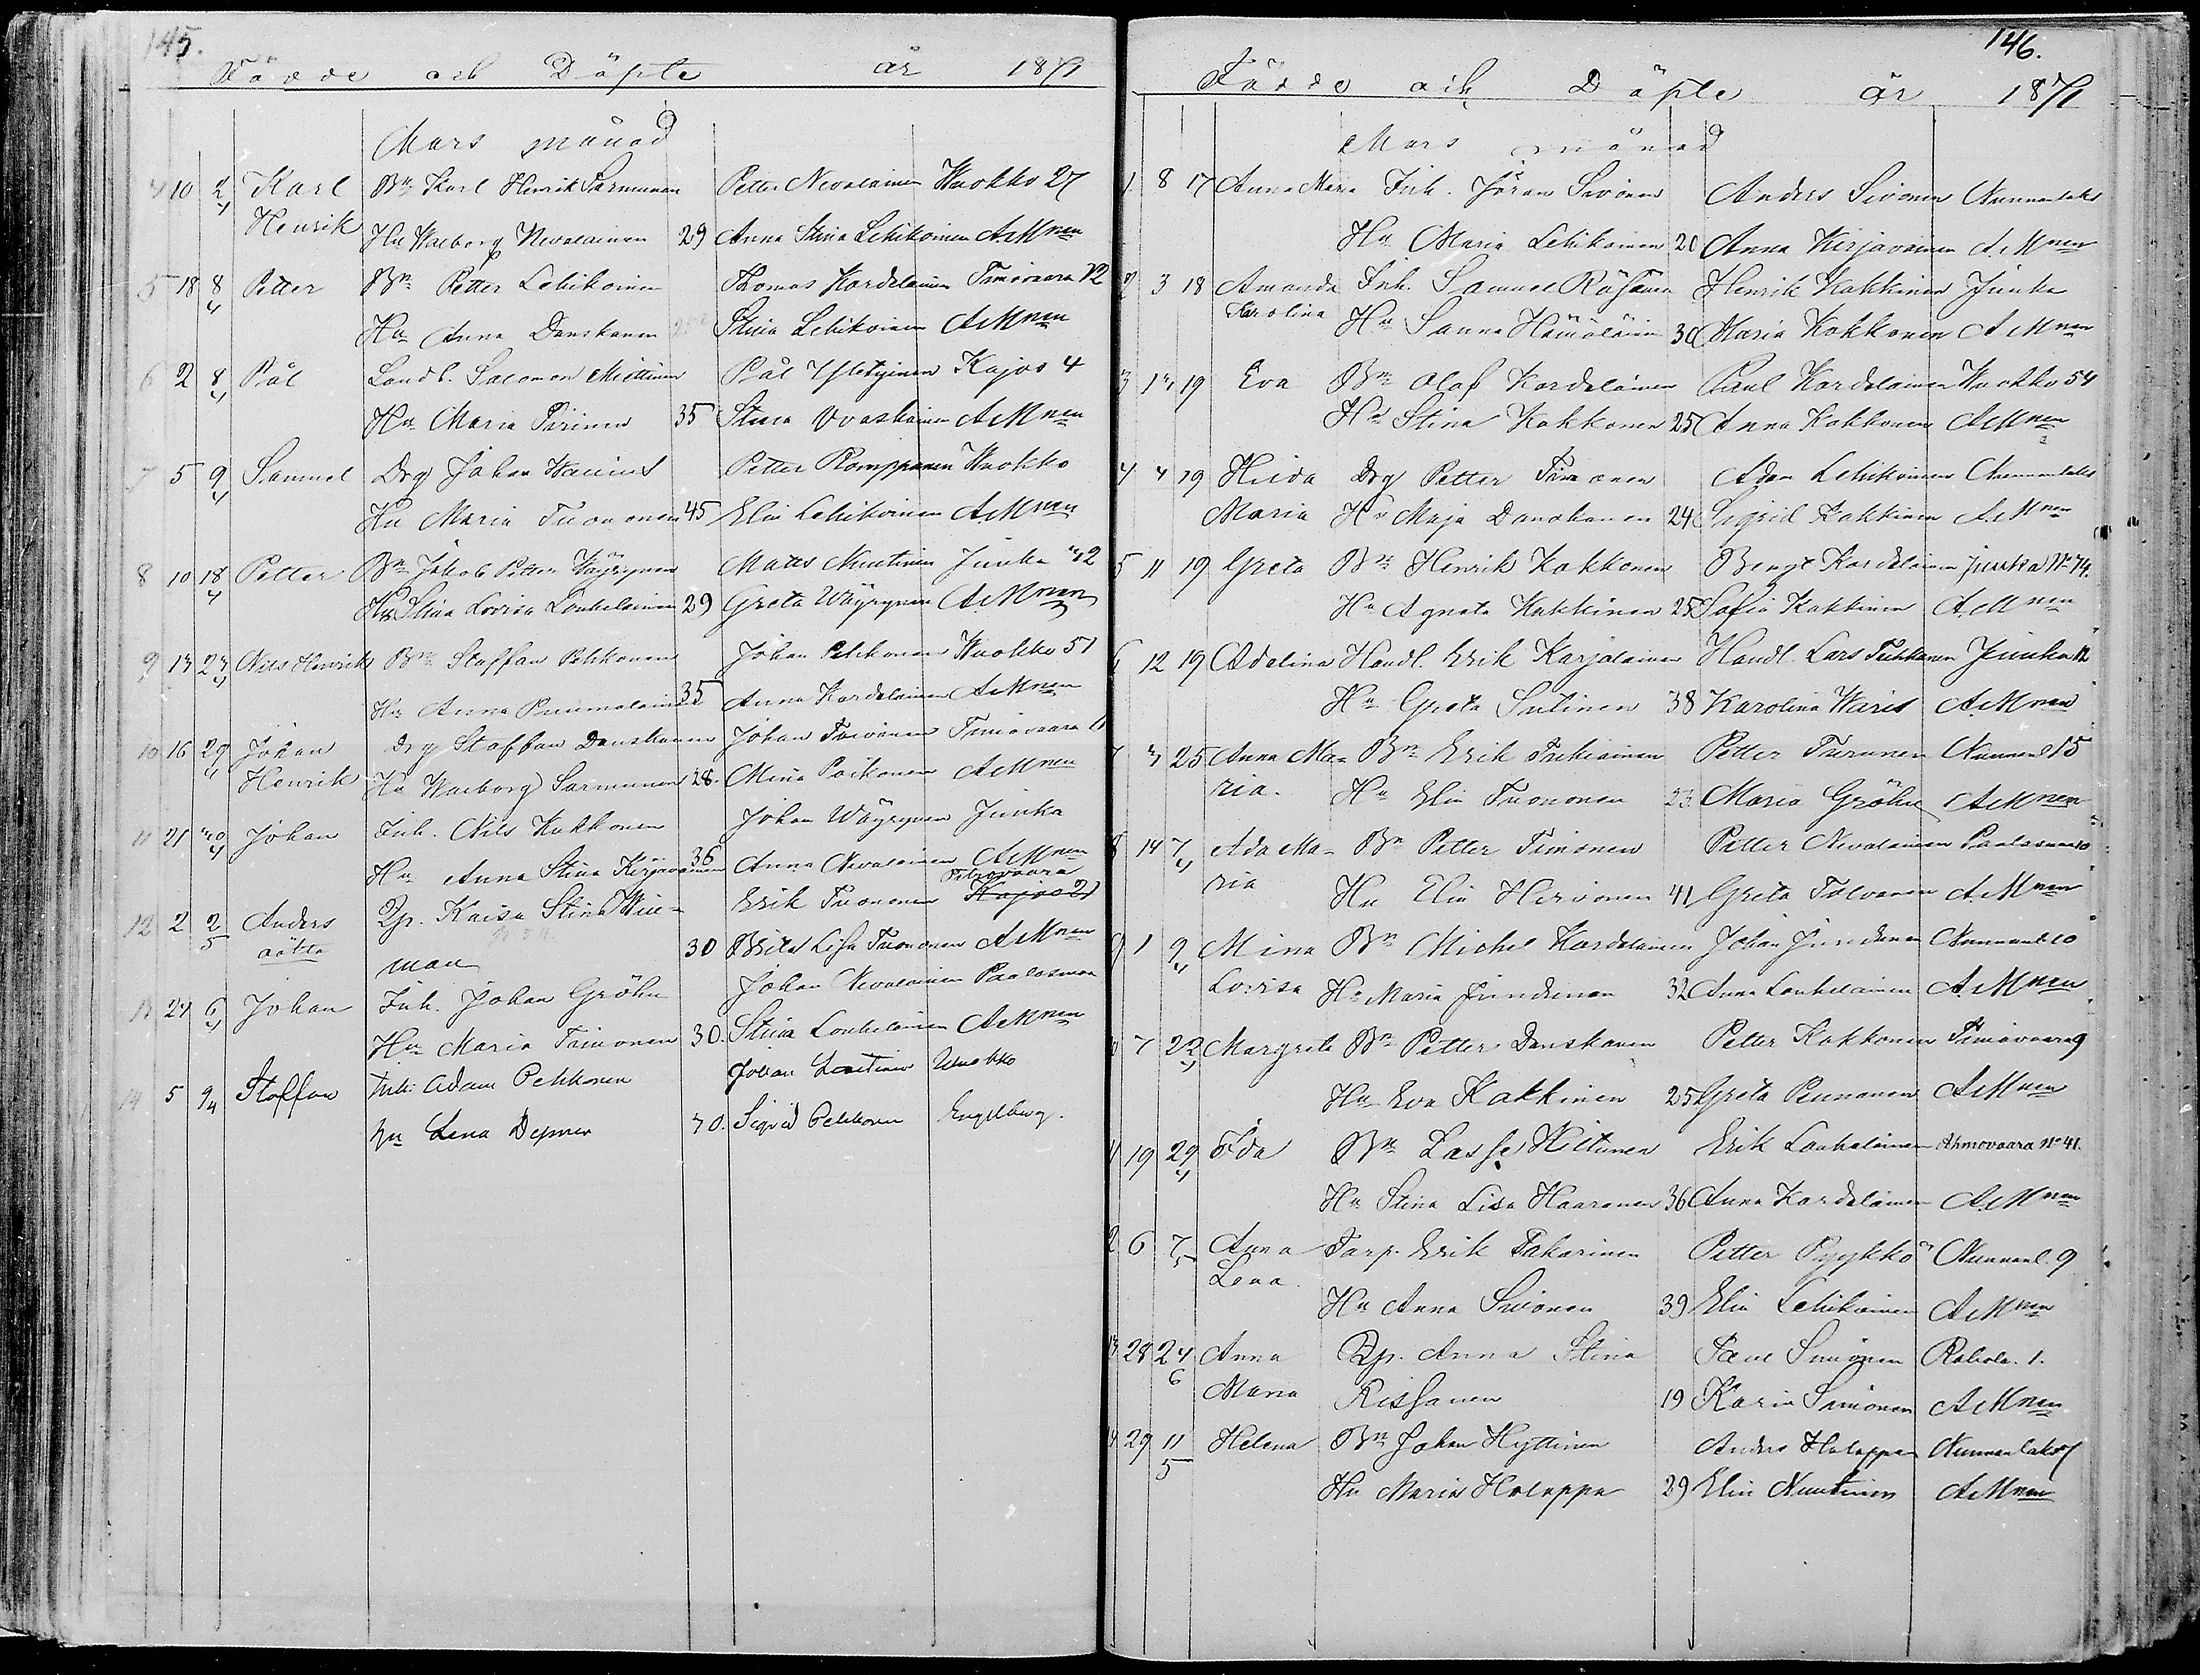 145.
Födde och Döpte år 1871
Mars månad
4 10 2/4 Karl Bn Karl Henrik Sarmunen Petter Nevalainen Wuokko 27
Henrik Hu Walborg Nevalainen 29 Anna Stina Lehikoinen AMnen
5 18 8/4 Petter Bn Petter Lehikoinen Thomas Kardelainen Timovaara 12
Hu Anna Danskanen Stina Lehikoinen AMnen
6 2 8/4 Pål Landb. Salomon Miettinen Pål Yletyinen Kajos 4
Hu Maria Piirinen 35 Stina AMnen
7 5 9/4 Samuel Drg Johan Petter Romppanen Wuokko
Hu Maria Tuononen 45 Elin Lehikoinen AMnen
8 10 18/4 Petter Bn Jakob Petter Wäyrynen Matts Nuutinen Juuka 32
Hu Stina Lovisa Louhelainen 29 Greta Wäyrynen AMnen
9 13 23/4 Nils Henrik Bn Staffan Pehkonen Johan Pehkonen Wuokko 51
Hu Anna Puumalainen 35 Anna Kardelainen AMnen
10 16 29/4 Johan Drg Staffan Danskanen Johan Toivonen Timovaara 11
Henrik Hu Walborg Sarmunen 28. Mina Poikonen AMnen
11 21 30/4 Johan Inh. Nils Kukkonen Johan Wäyrynen Juuka
Hu Anna Stina Kirjavainen 36 Anna Nevalainen AMnen
Petrovaara
12 2 2/5 Anders Qp. Kaisa Stina Wii- Erik Tuononen Kajos 21
oäkta man 30 Brita Lisa Tuononen AMnen
13 24 6/4 Johan Inh. Johan Gröhn Johan Nevalainen Paalasmaa
Hu Maria Timonen 30. Stina Louhelainen AMnen
14 5 9/4 Staffan Inh. Adam Pehkonen Johan Wuokko
hu Lena 30. Sigrid Pehkonen Engelberg.
146.
Födde och Döpte år 1871
Mars månad
1 8 17 Anna Maria Inh. Jöran Sivonen Anders Sivonen Nunnanlaks
Hu Maria Lehikoinen 20 Anna Kirjavainen AMnen
2 3 18 Amanda Inh. Samuel Räsänen Henrik Kakkinen Juuka
Karolina Hu Sanna Hämäläin 30 Maria Kokkonen AMnen
3 13 19 Eva Bn Olof Kardelainen Paul Kardelainen Wuokko 54
Hu Stina Kokkonen 25 Anna Kokkonen AMnen
4 4 19 Hilda Drg Petter Timonen Adam Lehikoinen Nunnanlaks
Maria Hu Maja Danskanen 24 Sigrid Kakkinen AMnen
5 11 19 Greta Bn Henrik Kokkonen Bengt Kardelainen Juuka No 74.
Hu Agneta Kakkinen 25 Sofia Kakkinen AMnen
6 12 19 Adelina Handl. Erik Karjalainen Handl. Lars Turkkanen Juuka 12
Hu Greta Sutinen 38 Karolina Waris AMnen
7 3 25 Anna Ma- Bn Erik Turkiainen Petter Turunen Nunnanl 15
ria. Hu Elin Tuononen 23 Maria Gröhn AMnen
8 14 7/4 Ada Ma- Bn Petter Timonen Petter Nevalainen Paalasmaa
ria Hu Elin Hirvonen 41 Greta Tolvanen AMnen
9 1 9/4 Mina Bn Michel Kardelainen Johan Jundunen Nunnanl. 10
Lovisa Hu Maria Jundunen 32 Anna Louhelainen AMnen
7 22/4 Margreta Bn Petter Danskanen Petter Kokkonen Timovaara 9
Hu Eva Kakkinen 25 Greta Pennanen AMnen
19 29/4 Ida Bn Lasse Hiltunen Erik Louhelainen Ahmovaara No 41.
Hu Stina Lisa Haaranen 36 Anna Kardelainen AMnen
6 7/5 Anna Torp. Erik Takarinen Petter Pyykkö Nunnanl. 9
Lena. Hu Anna Sivonen 39 Elin Lehikoinen AMnen
13 28 24/6 Anna Qp. Anna Stina Paul Simonen Rahola. 1.
Maria Rissanen 19 Karin Simonen AMnen
29 11/5 Helena Bn Johan Hyttinen Anders Holappa Nunnanlaks 7
Hu Maria Holappa 29 Elin Nuutinen AMnen